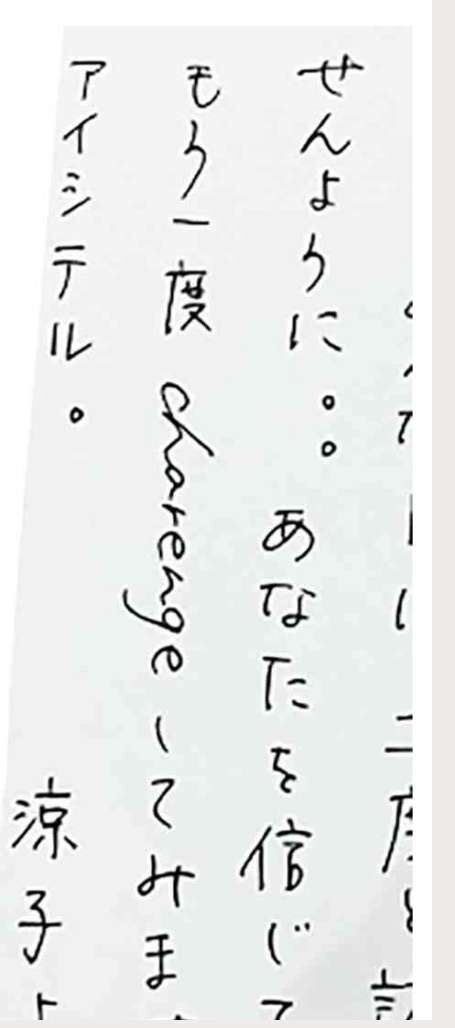 二度と
せんように。。あなたを信じて
もう一度charengeしてみま
アイシテル。
涼子